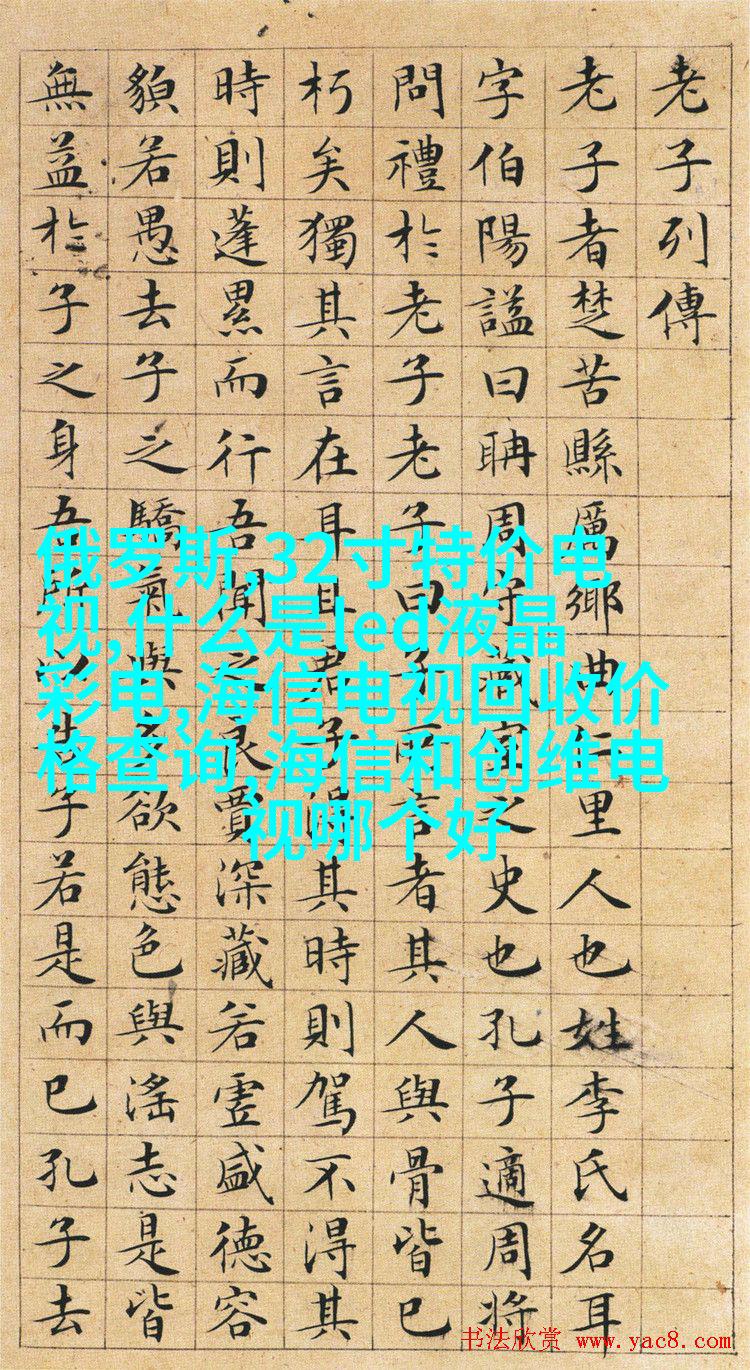 老子列傳
老子者楚苦縣厲鄉曲仁里人也姓李氏名耳
字伯陽謚曰聃周守藏室之史也孔子適周將
問禮於老子老子曰子所言者其人與骨皆已
朽矣獨其言在耳且君子得其時則駕不得其
時則蓬累而行吾聞之良賈深藏若虛盛德容
貌若愚去子之驕氣與多欲態色與淫志是皆
無益於子之身吾所以告子若是而已孔子去
俄罗斯,32寸特价电
视,什么是led液晶
彩电,海信电视回收价
格查询,海信和创维电
视哪个好
书法欣赏 www.yac8.com